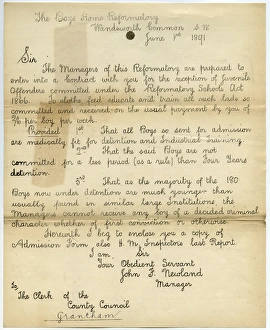 The Boys Home Reformatory
Wandsworth Common S.W.
June 1st 1891
Sir
The Managers of this Reformatory are prepared to
enter into a Contract with you for the reception of Juvenile
Offenders committed under the Reformatory Schools Act
1866. To clothe feed educate and train all such lads so
committed and received on the usual payment by you of
2/6 per boy per week.
Provided 1st That all Boys so sent for admission
are medically fit for detention and Industrial training
2nd That the said Boys are not
committed for a less period (as a rule) than Four Years
detention.
3rd That as the majority of the 180
Boys now under detention are much younger than
usually found in similar large Institutions, the
Managers cannot receive any boy of a decided criminal
character whether of first conviction or otherwise.
Herewith I beg to enclose you a copy of
Admission Form, also H. M. Inspectors last Report.
I am Sir
Your Obedient Servant
John F. Newland
Manager
To
The Clerk of the
County Council
Grantham